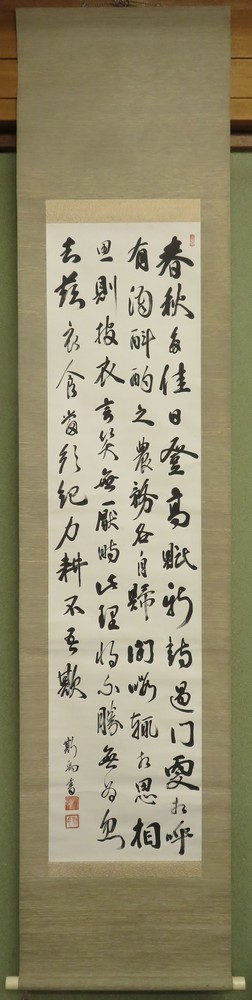 春秋多佳日登高賦新詩過門更相呼
有酒斟酌之農務各自歸閑暇輒相思相
思則披衣言笑無厭時此理將不勝無為忽
去茲衣食當須紀力耕不吾欺
書